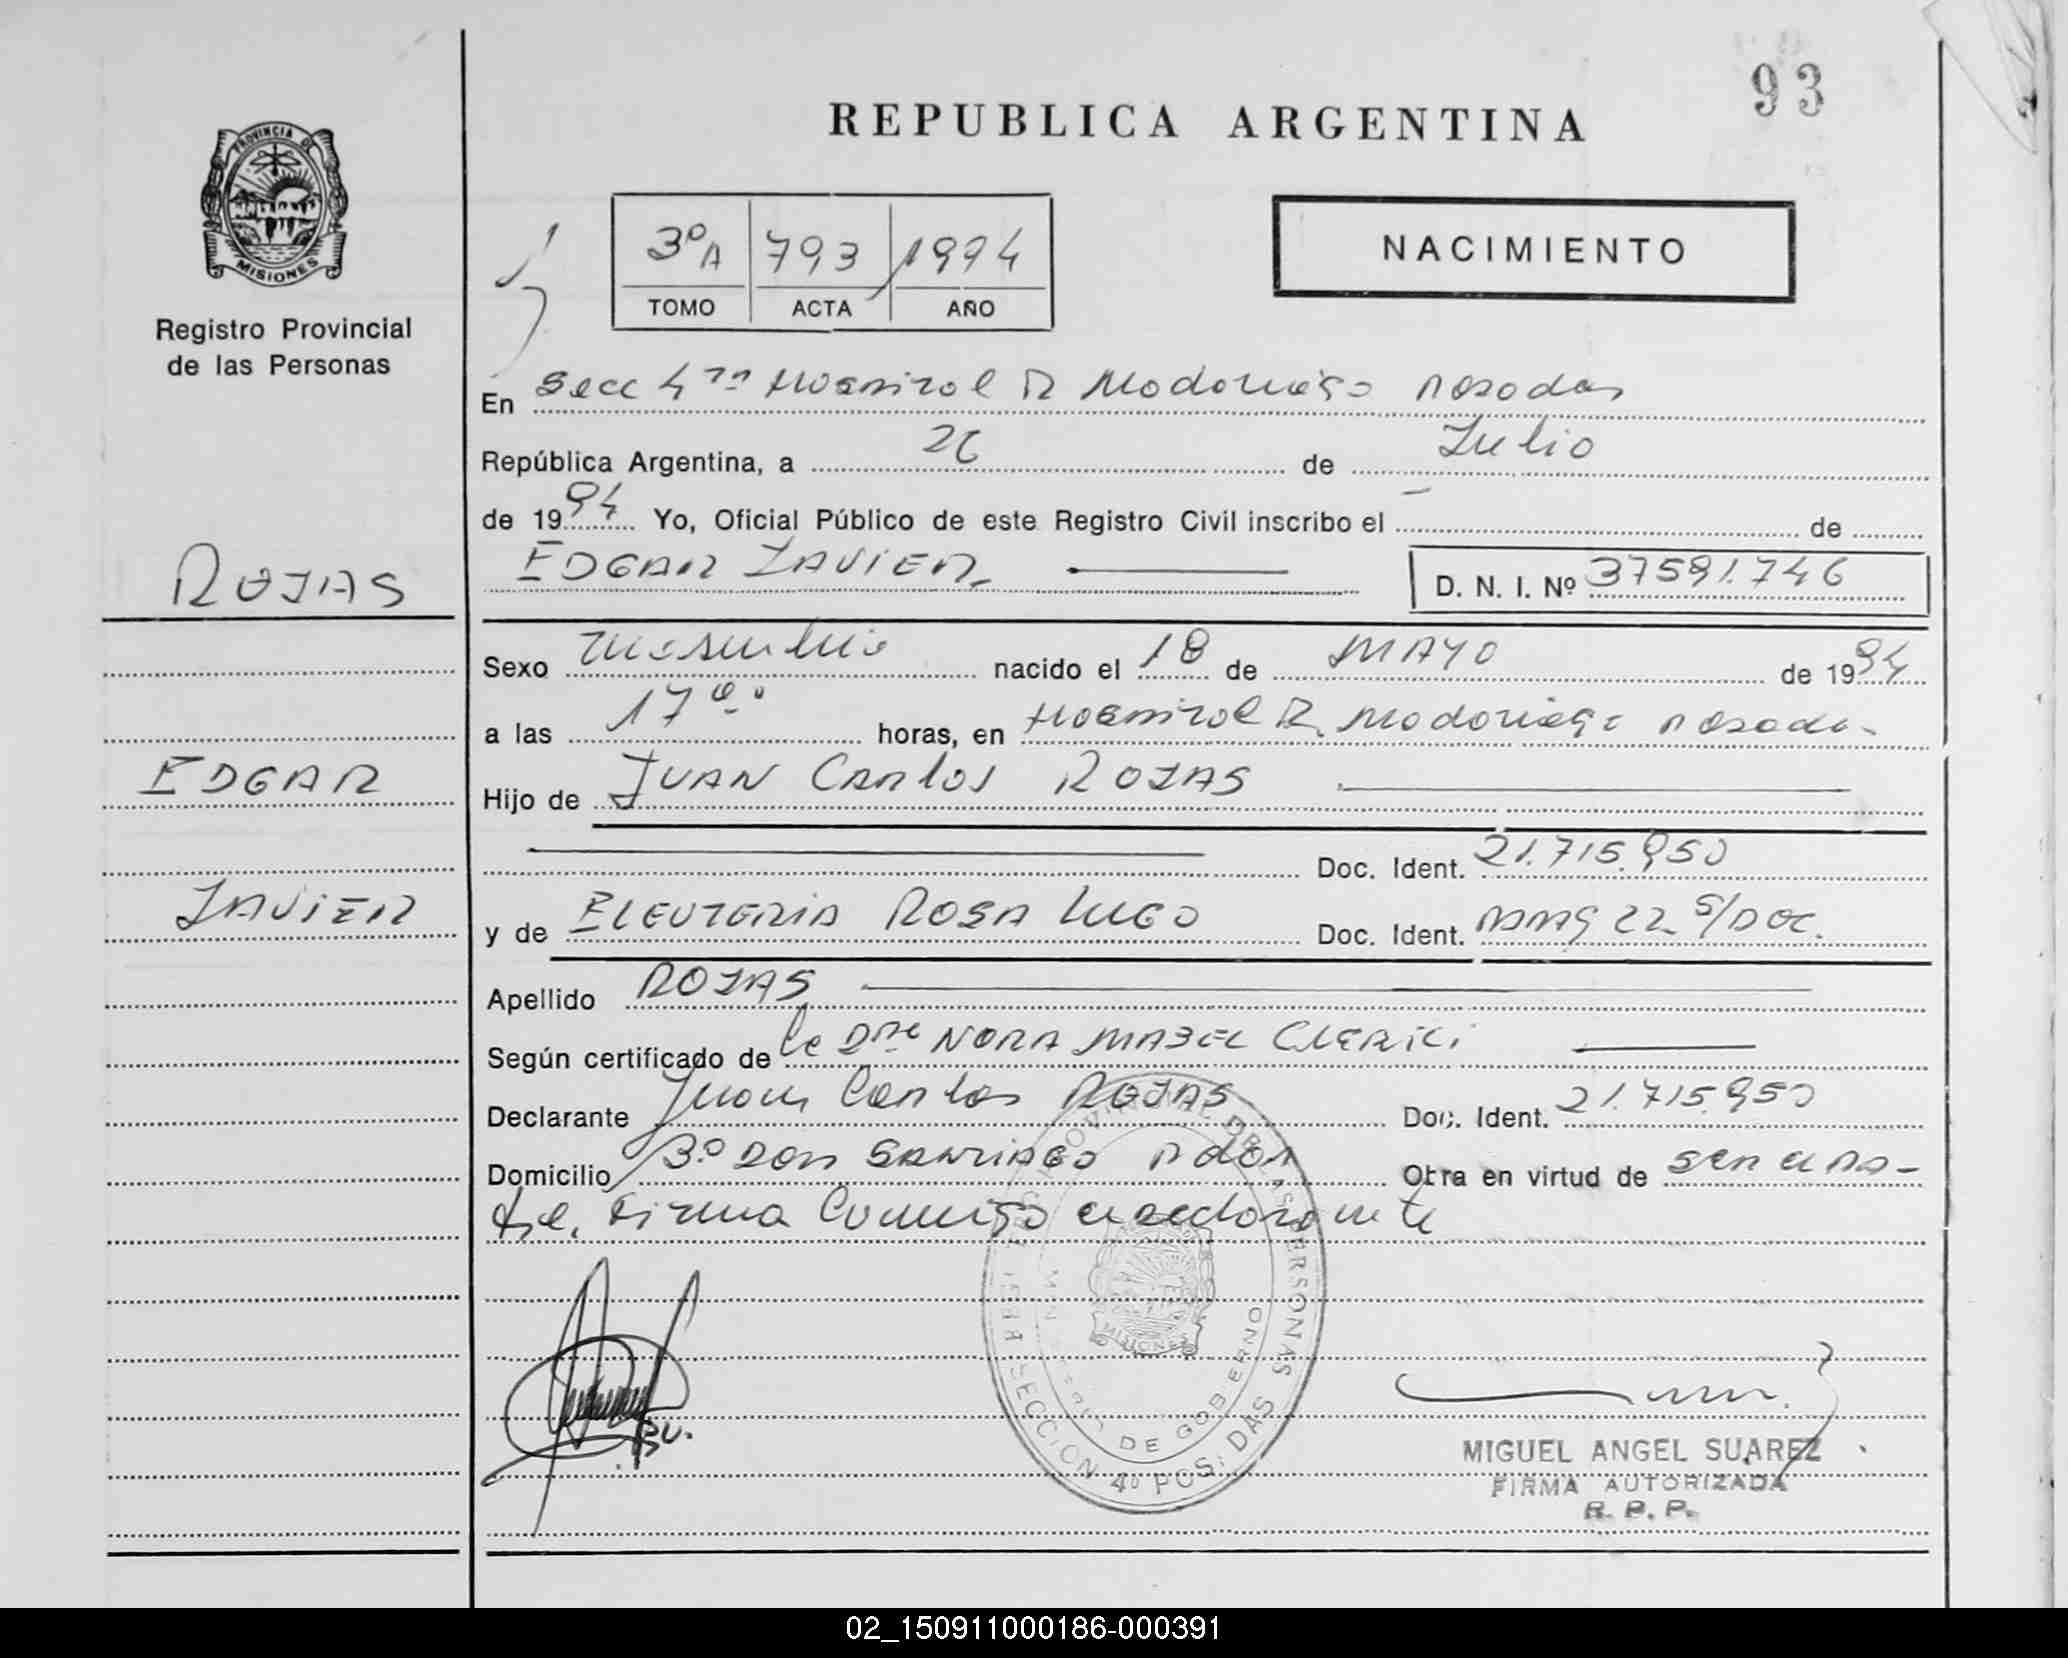 93
REPUBLICA ARGENTINA
PROVINCIA DE MISIONES
Registro Provincial
de las Personas
3º A 793 1994
TOMO ACTA AÑO
NACIMIENTO
En Secc 4ta Hospital R Madariaga Posadas
República Argentina, a 26 de Julio
de 1994 Yo, Oficial Público de este Registro Civil inscribo el - de
ROJAS
EDGAR JAVIER D. N. I. Nº 37591.746
Sexo Masculino nacido el 18 de MAYO de 1994
a las 17 horas, en Hospital R. Madariaga Posadas
EDGAR
Hijo de JUAN CARLOS ROJAS
Doc. Ident. 21.715.950
JAVIER
y de ELEUTERIA ROSA LUGO Doc. Ident. 22 S/DOC.
Apellido ROJAS
Según certificado de la Dra NORA MABEL CLERICI
Declarante Juan Carlos ROJAS Doc. Ident. 21.715.950
Domicilio Bº DON SANTIAGO Pdas Obra en virtud de ser el pa-
dre, Firma Conmigo el declarante
REGISTRO PROVINCIAL DE LAS PERSONAS
MINISTERIO DE GOBIERNO
MISIONES
SECCION 4º POSADAS
MIGUEL ANGEL SUAREZ
FIRMA AUTORIZADA
R. P. P.
02_150911000186-000391